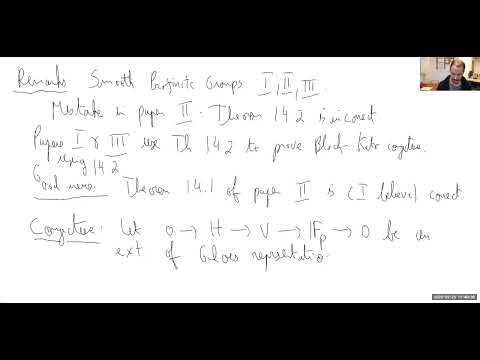 Remarks Smooth Profinite Groups I, II, III.
Mistake in paper II. Theorem 14.2 is incorrect
Papers I & III use Th 14.2 to prove Bloch-Kato conjecture.
using 14.2
Good news: Theorem 14.1 of paper II is (I believe) correct
Conjecture: Let 0 → H → V → 𝔽p → 0 be an
ext of Galois representations.